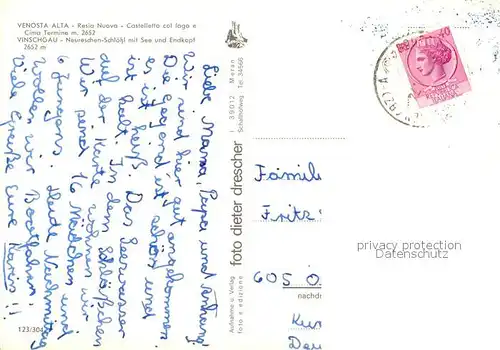 VENOSTA ALTA - Resia Nuova - Castelletto col lago e
Cima Termine m. 2652
VINSCHGAU - Neureschen-Schlößl mit See und Endkopf
2652 m
Liebe Mama, Papa und
Wir sind hier gut angekommen.
Die Gegend ist schön und
es ist heiß. Das Seewasser
ist kalt. In dem Schlößchen
auf der Karte wohnen wir.
Wir sind 16 Mädchen und
6 Jungens. Heute Nachmittag
wollen wir Bootfahren.
Viele Grüße Eure Karin!!
123/304
Aufnahme u. Verlag
foto e edizione
foto dieter drescher
I 39012 Meran
Schallhofweg Tel. 34566
Famil
Fritz
605 O
nachdr
privacy protection
Datenschutz